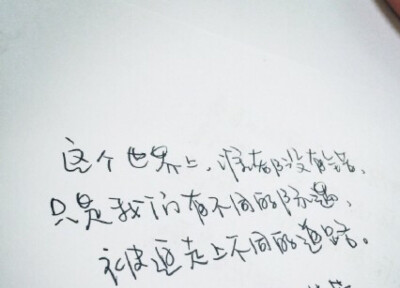 这个世界上，谁都没有错，
只是我们有不同的际遇，
被逼走上不同的道路。